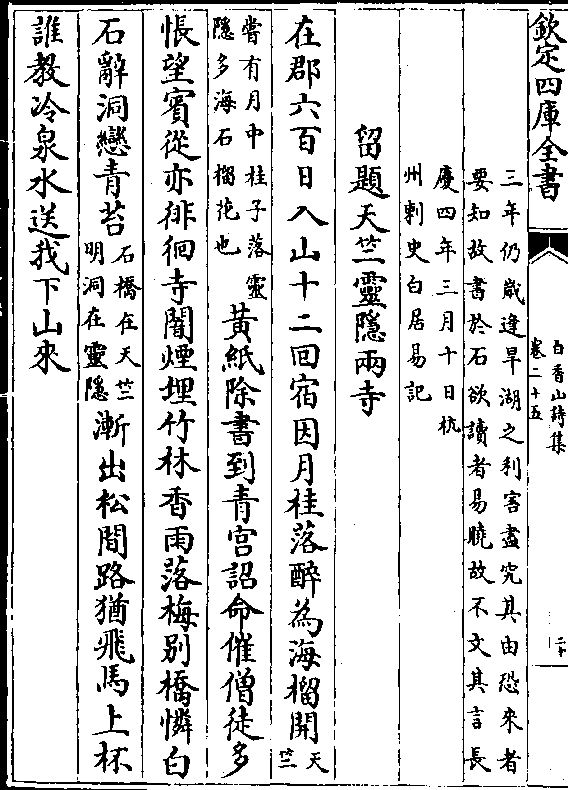 欽定四庫全書
白香山詩集
卷二十五
二十
三年仍嵗逢旱湖之利害盡究其由恐來者
要知故書於石欲讀者易曉故不文其言長
慶四年三月十日杭
州刺史白居易記
留題天竺靈隱兩寺
在郡六百日入山十二回宿因月桂落醉為海榴開天竺
嘗有月中桂子落靈
隱多海石榴花也
黄紙除書到青宫詔命催僧徒多
悵望賓從亦徘徊寺闇煙埋竹林香雨落梅别橋憐白
石辭洞戀青苔石橋在天竺
明洞在靈隱
漸出松間路猶飛馬上杯
誰教冷泉水送我下山來